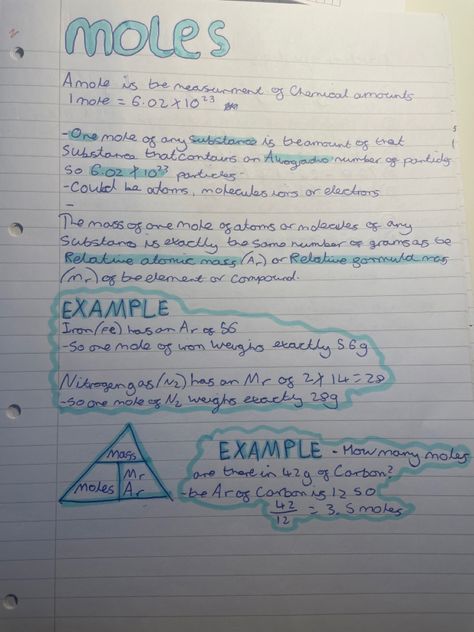 moles
A mole is the measurment of Chemical amounts
1 mole = 6.02 x 10²³
- One mole of any substance is the amount of that
Substance that contains an Avogadro number of particles
so 6.02 x 10²³ particles -
- Could be atoms, molecules ions or electrons
-
The mass of one mole of atoms or molecules of any
Substance is exactly the same number of grams as the
Relative atomic mass (Ar) or Relative formula mass
(Mr) of the element or compound.
EXAMPLE
Iron (Fe) has an Ar of 56
- So one mole of iron weighs exactly 56g
Nitrogen gas (N₂) has an Mr of 2 x 14 = 28
- so one mole of N₂ weighs exactly 28g
mass
moles
Mr
Ar
EXAMPLE - How many moles
are there in 42g of Carbon?
- the Ar of Carbon is 12 so
42/12 = 3.5 moles